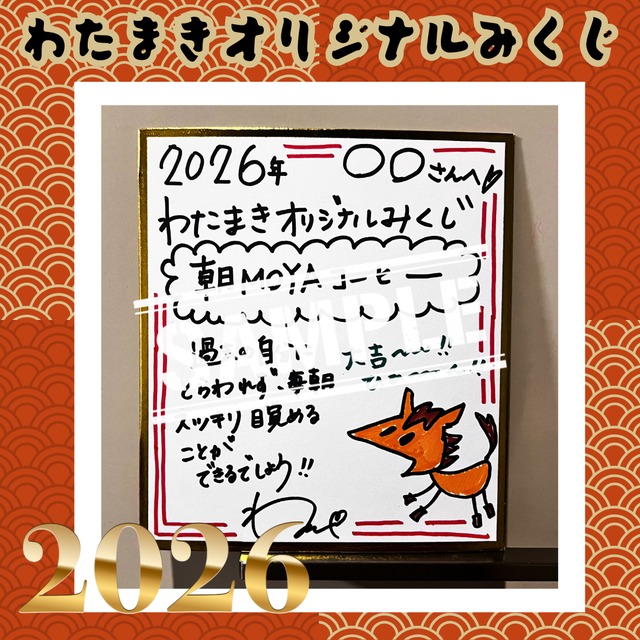 わたまきオリジナルみくじ
2026年 〇〇さんへ♡
わたまきオリジナルみくじ
朝MOYAコーヒー
SAMPLE
過去の自分に
大吉〜〜!!
とらわれず、毎朝
スッキリ目覚める
ことが
できるでしょう!!
2026